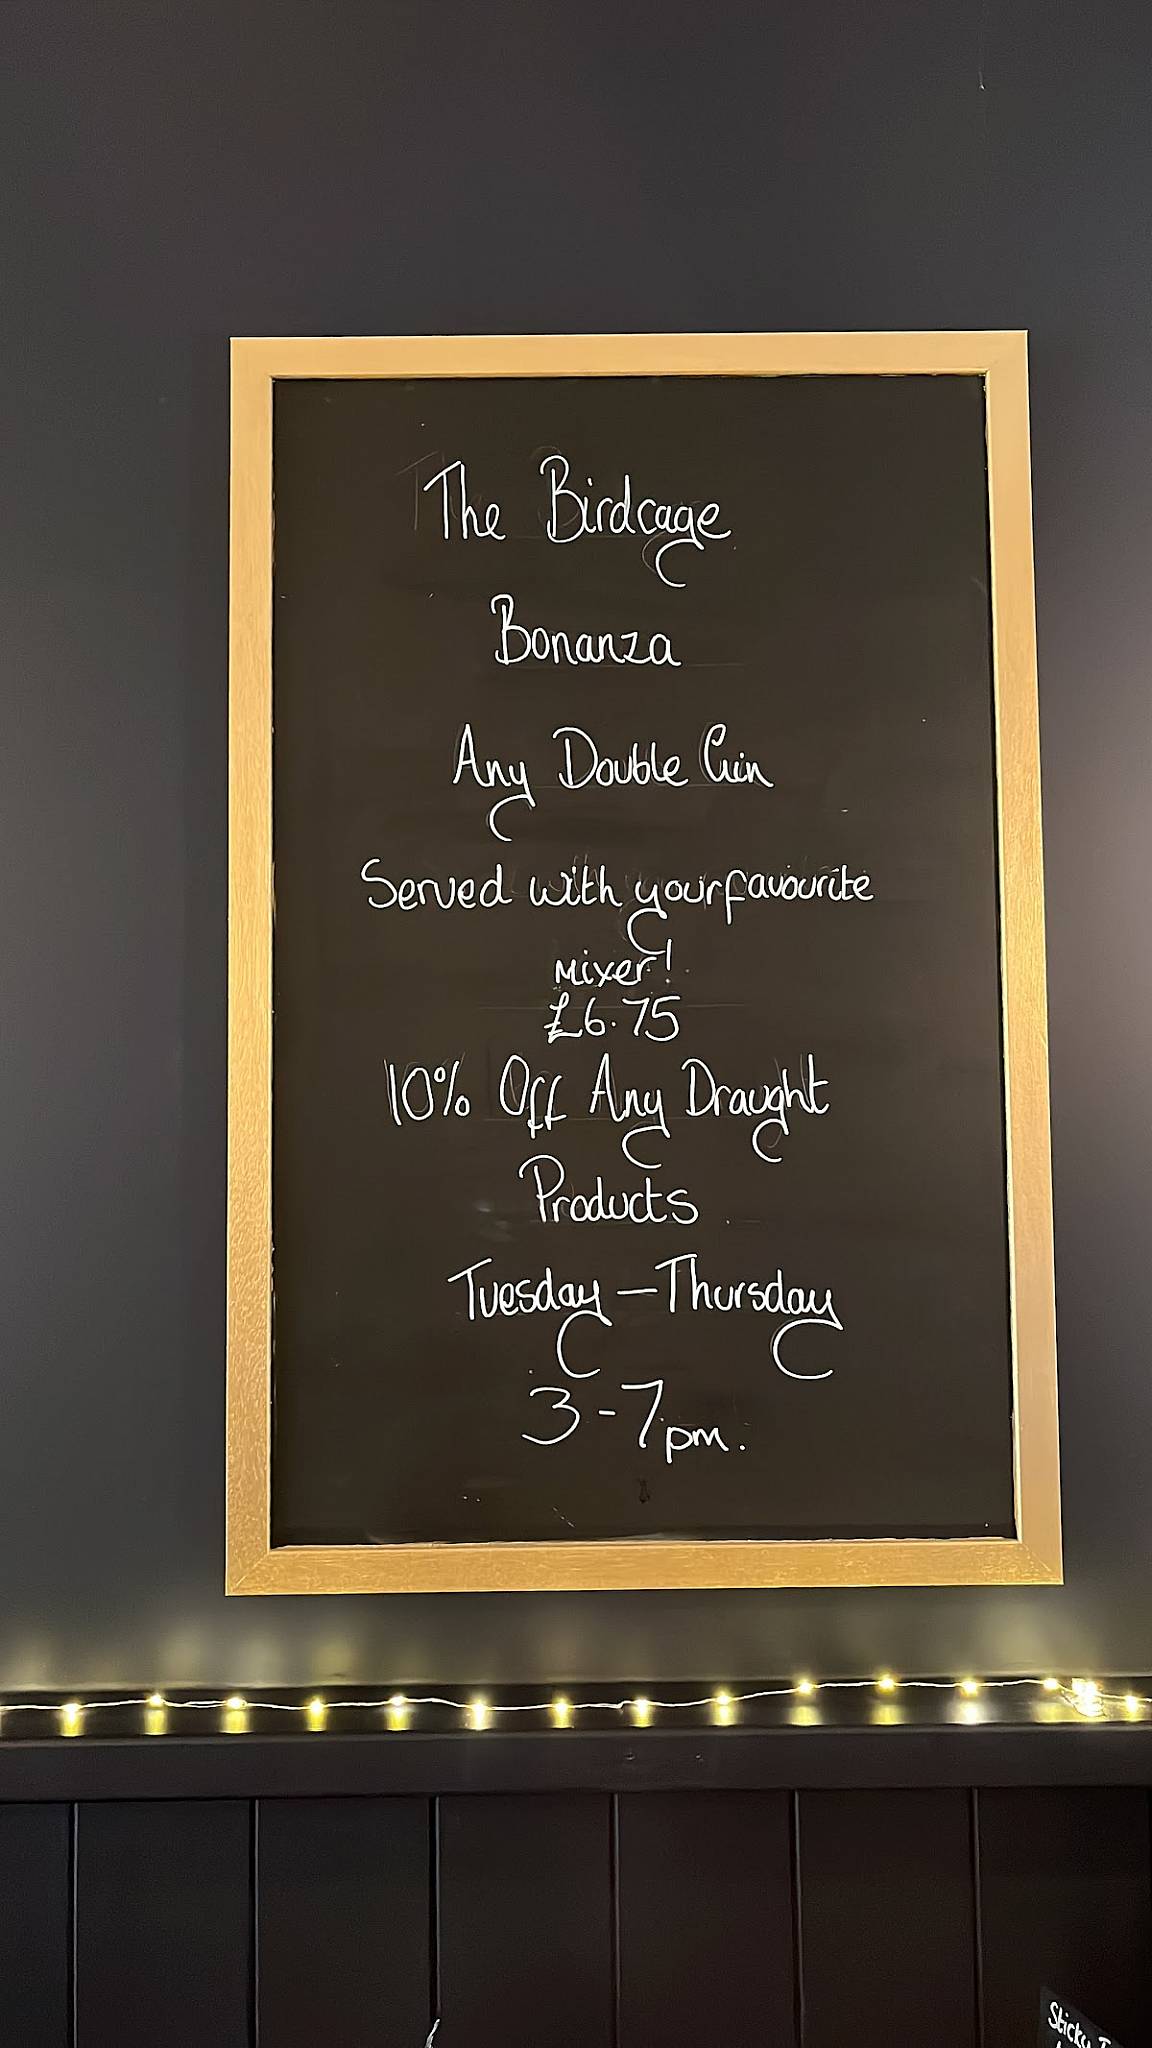 The Birdcage
Bonanza
Any Double Gin
Served with your favourite
mixer!
£6.75
10% Off Any Draught
Products
Tuesday – Thursday
3-7pm.
Sticky